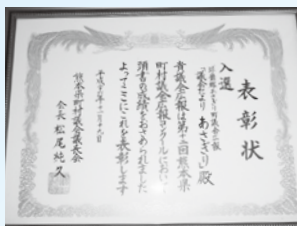 表彰状
入選
「議会だより あさぎり」殿
貴議会広報は第十五回熊本県
町村議会広報コンクールにおいて
頭書の成績をおさめられました
よってここにこれを表彰します
熊本県町村議会議長会
会長 松尾純久